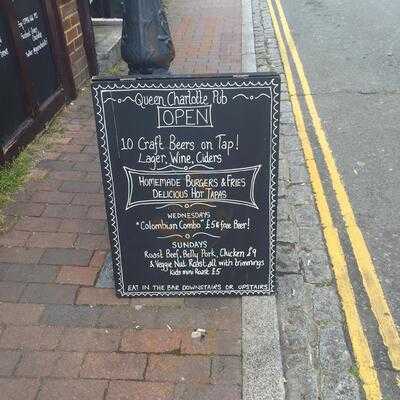 Queen Charlotte Pub
OPEN
10 Craft Beers on Tap!
Lager, Wine, Ciders
Homemade Burgers & Fries
Delicious Hot Tapas
Wednesdays
"Colombian Combo" £5 & free Beer!
Sundays
Roast Beef, Belly Pork, Chicken £9
& Veggie Nut Roast all with trimmings
Kids mini Roast £5
EAT IN THE BAR DOWNSTAIRS OR UPSTAIRS